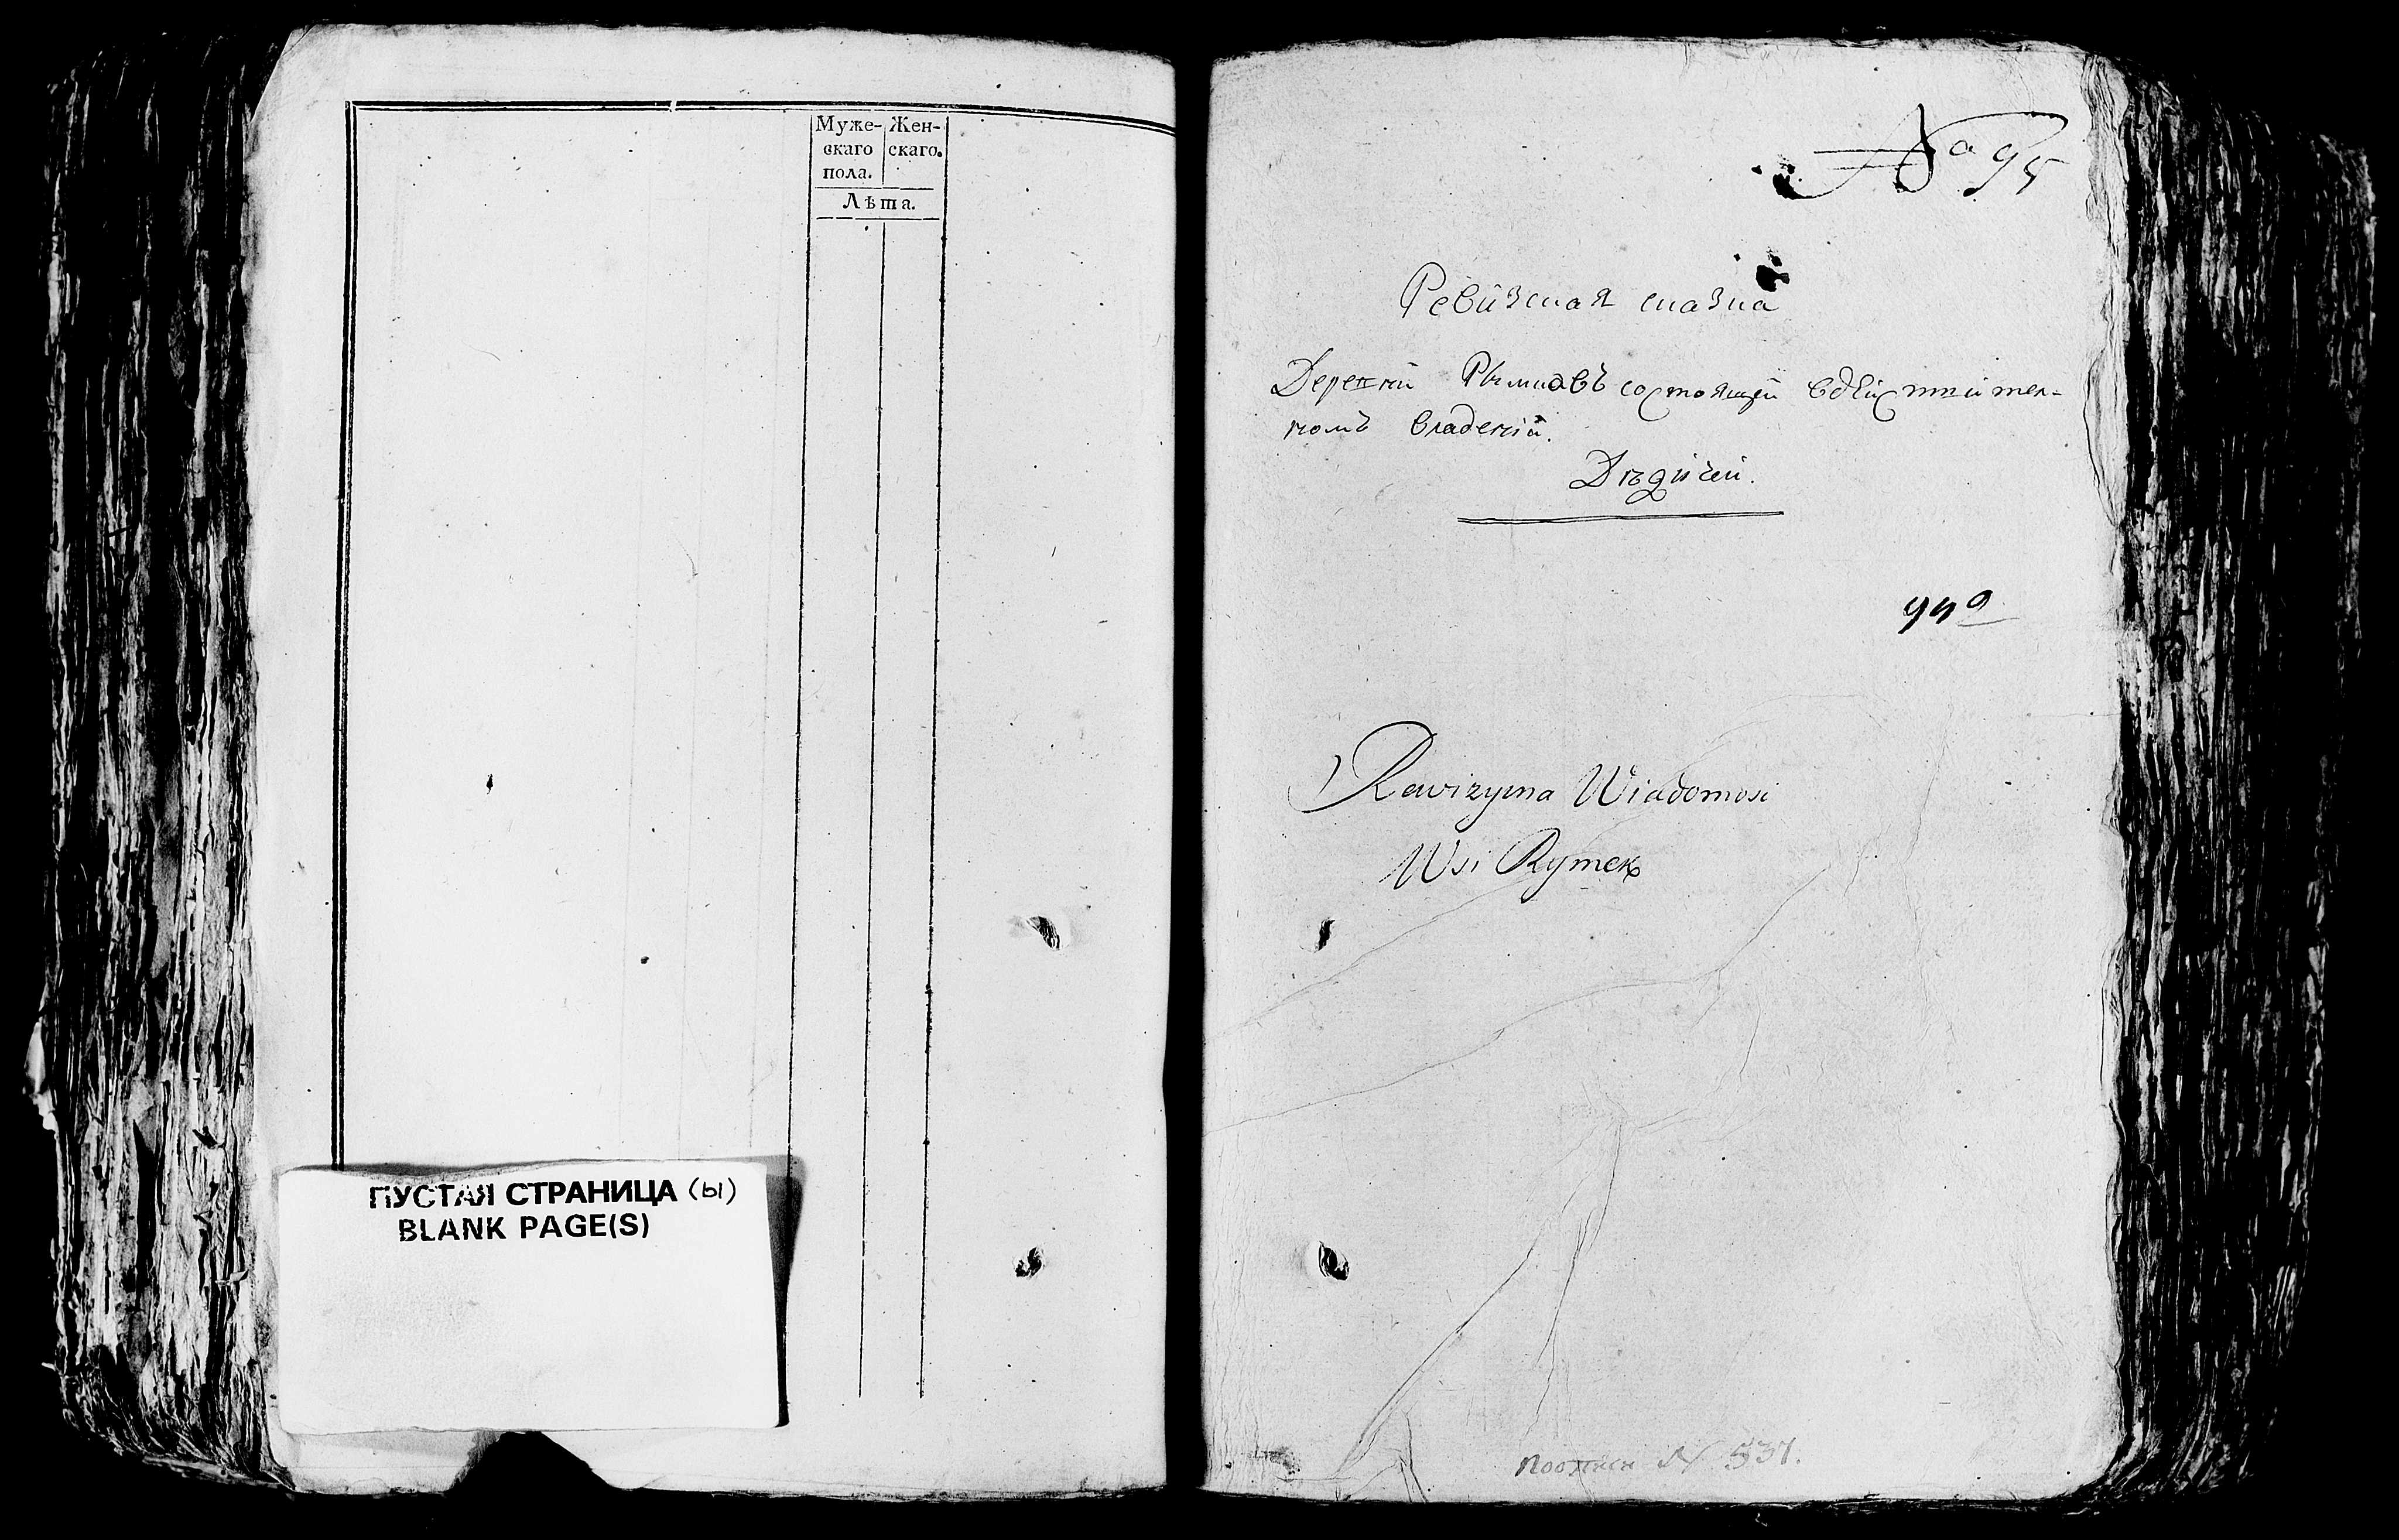 Муже- Жен-
скаго скаго.
пола.
Лѣта.
ПУСТАЯ СТРАНИЦА (ы)
BLANK PAGE(S)
№ 95
Ревизская сказка
Деревни Рымковъ состоящей вдѣйствител-
номъ владенiи.
Дѣдичей.
Rewizyina Wiadomosi
Wsi Rymek
по описи № 537.